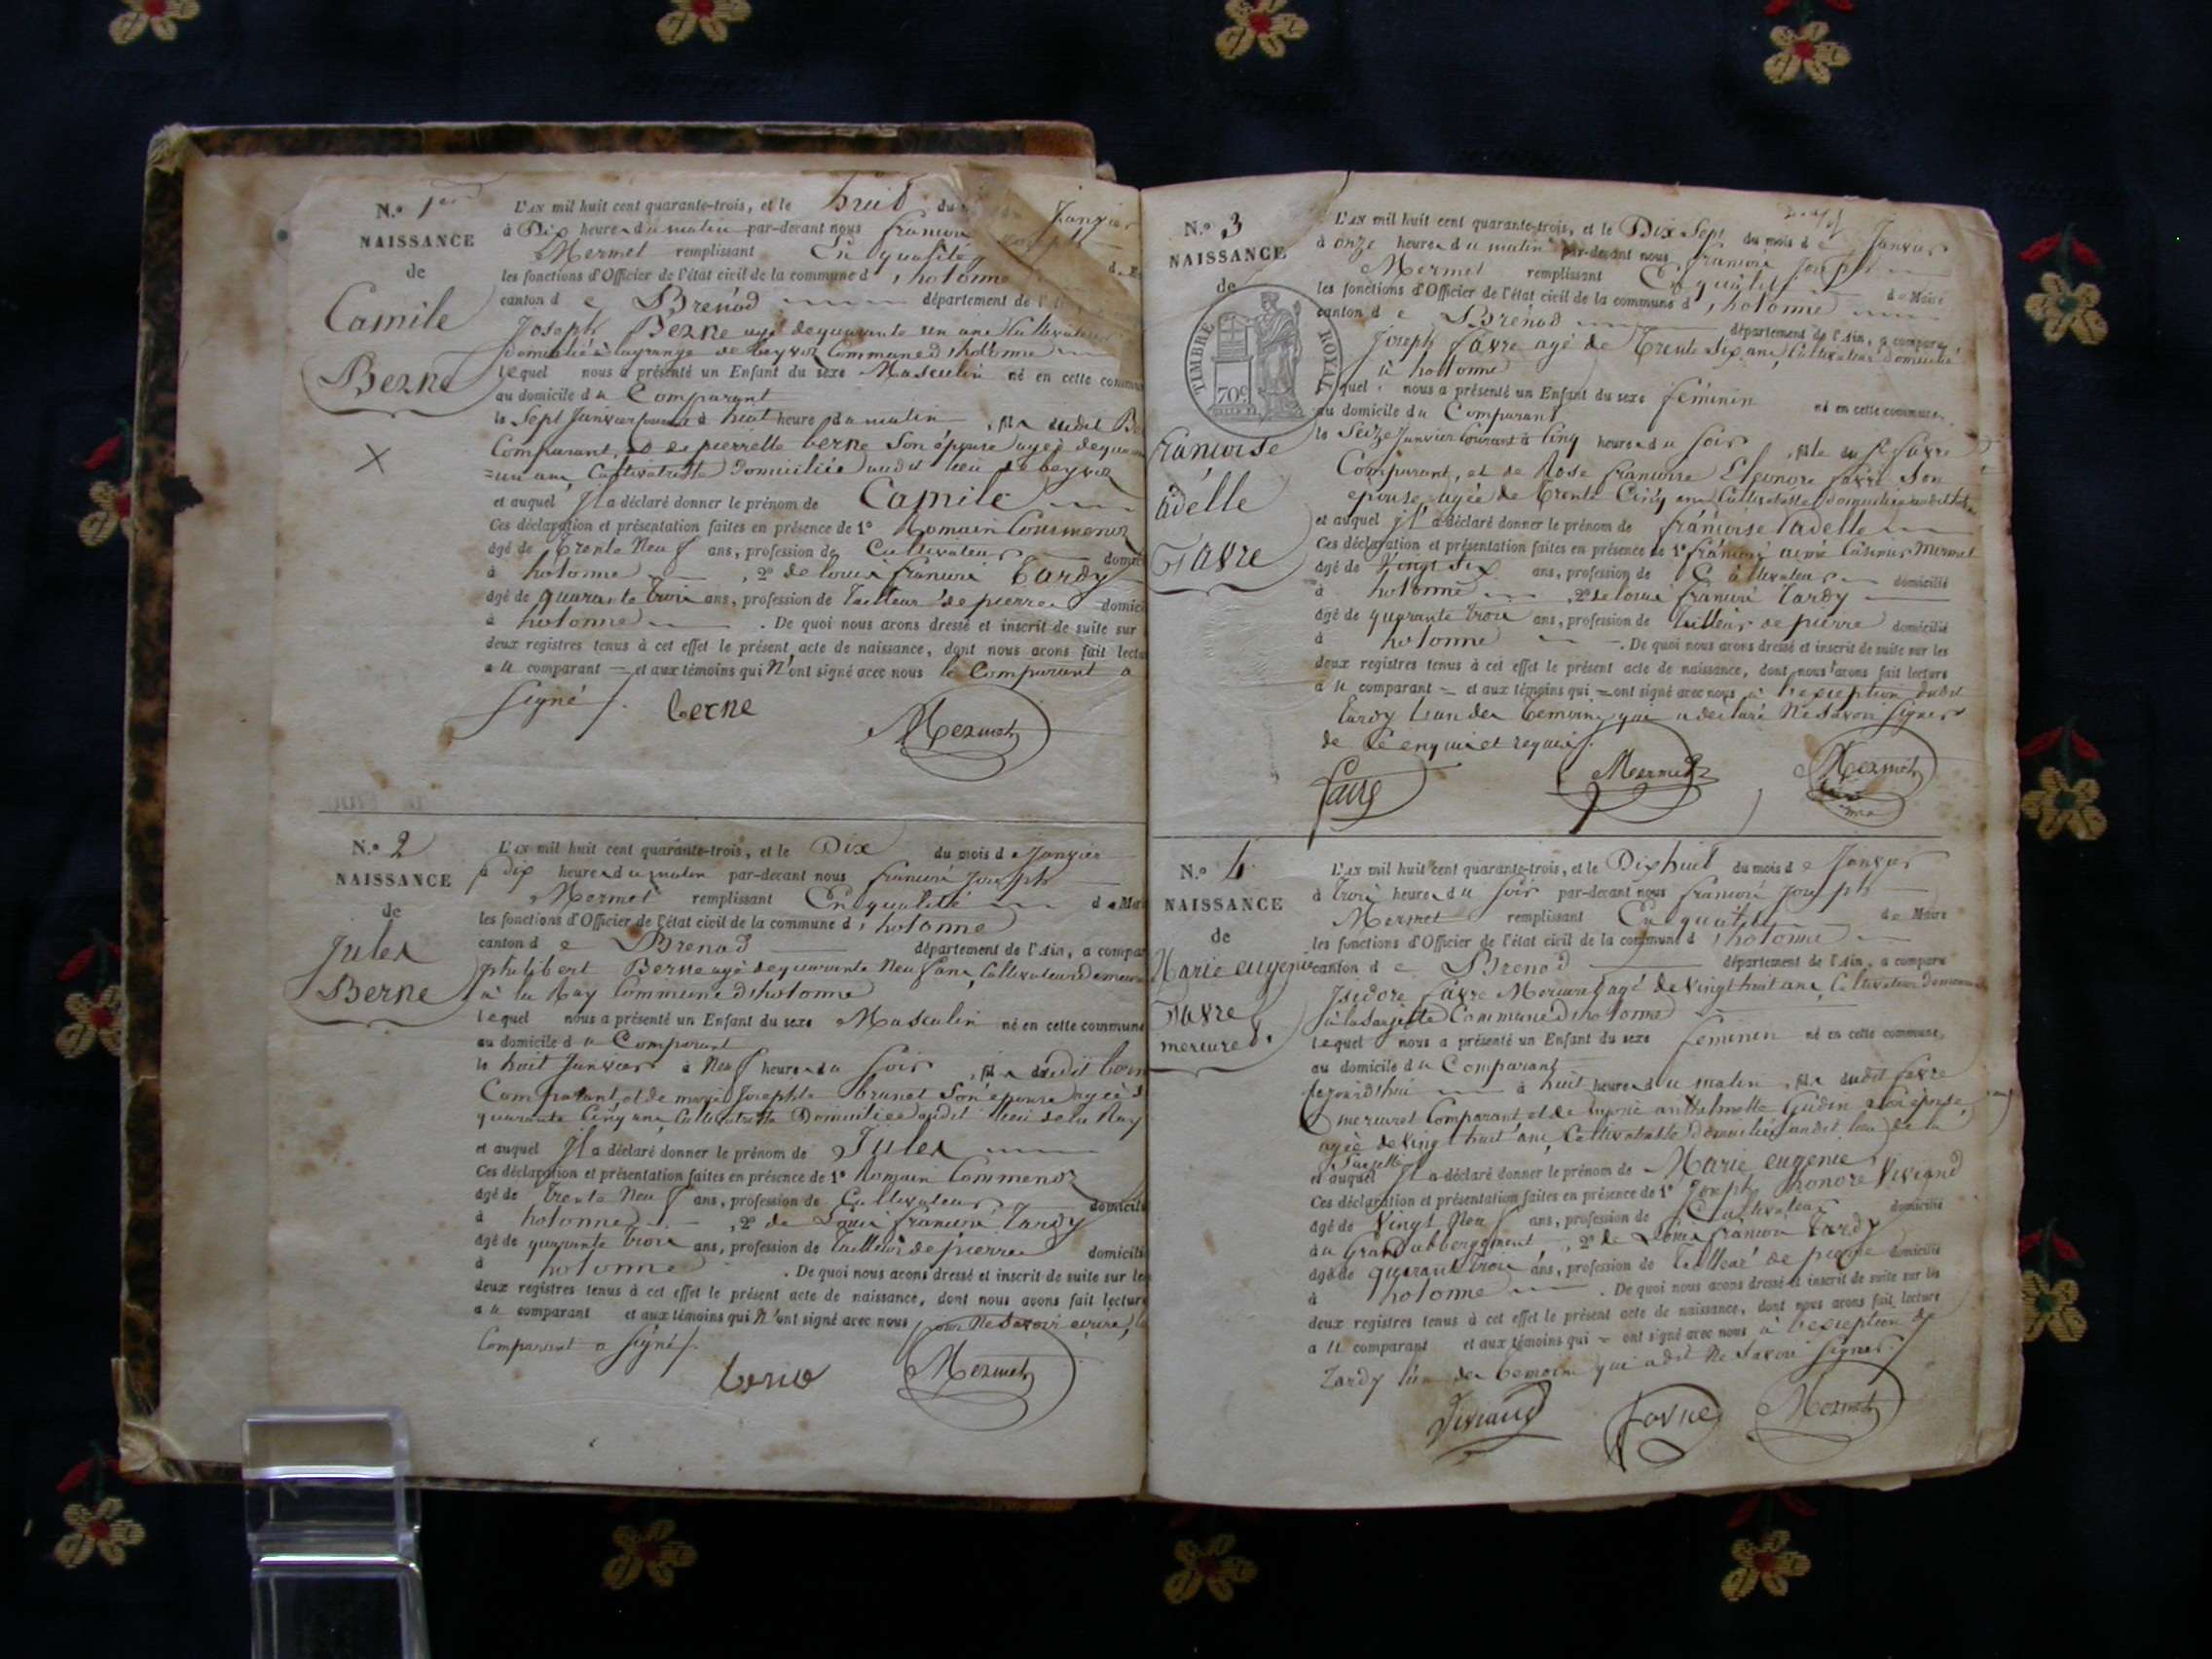 N.º 1er
NAISSANCE
de
Camile
Berne
L'an mil huit cent quarante-trois, et le huit du Janvier
à Dix heures du matin par-devant nous françois
Mermet remplissant En qualité
les fonctions d'Officier de l'état civil de la commune d'hotonne
canton de Brénod département de l'
Joseph Berne agé de quarante un ans Cultivateur
Domicilié à lagrange de beyvoz Commune d'hotonne
lequel nous a présenté un Enfant du sexe Masculin né en cette commune
au domicile du Comparant
le Sept Janvier à huit heures du matin, fils dudit Be
Comparant, et de pierrette berne Son épouse agée de quarante
=un ans, Cultivatrice Domiciliée audit lieu de beyvoz
et auquel il a déclaré donner le prénom de Camile
Ces déclaration et présentation faites en présence de 1º Romain Commenoz
âgé de Trente Neuf ans, profession de Cultivateur domici
à hotonne, 2º de louis françois Tardy
âgé de quarante trois ans, profession de Tailleur de pierres domici
à hotonne. De quoi nous avons dressé et inscrit de suite sur
deux registres tenus à cet effet le présent acte de naissance, dont nous avons fait lectu
au comparant et aux témoins qui N'ont signé avec nous le Comparant a
Signé
berne
Mermet
N.º 2
NAISSANCE
de
Jules
Berne
L'an mil huit cent quarante-trois, et le Dix du mois de Janvier
à dix heures du matin par-devant nous françois Joseph
Mermet remplissant En qualité de Mai
les fonctions d'Officier de l'état civil de la commune d'hotonne
canton de Brenod département de l'Ain, a compar
philibert Berne agé de quarante Neuf ans, Cultivateur Demeur
à la Ray Commune d'hotonne
lequel nous a présenté un Enfant du sexe Masculin né en cette commune
au domicile du Comparant
le huit Janvier à Neuf heures du Soir, fils dudit bern
Comparant, et de marie Josephte brunet Son épouse agée de
quarante Cinq ans, Cultivatrice Domiciliée audit lieu de la Ray
et auquel il a déclaré donner le prénom de Jules
Ces déclaration et présentation faites en présence de 1º Romain Commenoz
âgé de Trente Neuf ans, profession de Cultivateur domicili
à hotonne, 2º de Louis françois Tardy
âgé de quarante trois ans, profession de Tailleur de pierres domicili
à hotonne. De quoi nous avons dressé et inscrit de suite sur les
deux registres tenus à cet effet le présent acte de naissance, dont nous avons fait lecture
au comparant et aux témoins qui N'ont signé avec nous pour Ne Savoir écrire, le
Comparant a Signé
berne
Mermet
N.º 3
NAISSANCE
de
TIMBRE ROYAL
70c
françoise
adelle
Favre
L'an mil huit cent quarante-trois, et le Dix Sept du mois de Janvier
à onze heures du matin par-devant nous françois Joseph
Mermet remplissant En qualité de Maire
les fonctions d'Officier de l'état civil de la commune d'hotonne
canton de Brénod département de l'Ain, a comparu
Joseph favre agé de Trente Six ans, Cultivateur domicilié
à hotonne
lequel nous a présenté un Enfant du sexe féminin né en cette commune,
au domicile du Comparant
le Seize Janvier Courant à Cinq heures du Soir, fille du Sr favre
Comparant, et de Rose françoise Eléonore favre Son
épouse agée de Trente Cinq ans Cultivatrice
et auquel il a déclaré donner le prénom de françoise adelle
Ces déclaration et présentation faites en présence de 1º françois Casimir Mermet
âgé de Vingt Six ans, profession de Cultivateur domicilié
à hotonne, 2º de louis françois Tardy
âgé de quarante trois ans, profession de Tailleur de pierre domicilié
à hotonne. De quoi nous avons dressé et inscrit de suite sur les
deux registres tenus à cet effet le présent acte de naissance, dont nous avons fait lecture
au comparant = et aux témoins qui = ont signé avec nous à l'exception dudit
Tardy l'un des Témoins qui a déclaré Ne Savoir Signer
de ce enquis et requis
favre
Mermet
Mermet
N.º 4
NAISSANCE
de
Marie eugenie
Favre
mercuret
L'an mil huit cent quarante-trois, et le Dix huit du mois de Janvier
à Trois heures du Soir par-devant nous françois Joseph
Mermet remplissant En qualité de Maire
les fonctions d'Officier de l'état civil de la commune d'hotonne
canton de Brenod département de l'Ain, a comparu
Isidore favre Mercuret agé de Vingt huit ans, Cultivateur Demeurant
à la Sarzette Commune d'hotonne
lequel nous a présenté un Enfant du sexe féminin né en cette commune,
au domicile du Comparant
à huit heures du matin, fille dudit favre
mercuret Comparant, et de Gudin Son épouse,
agée de Vingt huit ans, Cultivatrice Domiciliée audit lieu de la
Sarzette
et auquel il a déclaré donner le prénom de Marie eugenie
Ces déclaration et présentation faites en présence de 1º Joseph honoré Vivand
âgé de Vingt Neuf ans, profession de Cultivateur domicilié
au Grand abbergement, 2º de Louis françois Tardy
âgé de quarante trois ans, profession de Tailleur de pierre domicilié
à hotonne. De quoi nous avons dressé et inscrit de suite sur les
deux registres tenus à cet effet le présent acte de naissance, dont nous avons fait lecture
au comparant et aux témoins qui = ont signé avec nous à l'exception de
Tardy l'un des Témoins qui a dit Ne Savoir Signer
Vivand
favre
Mermet